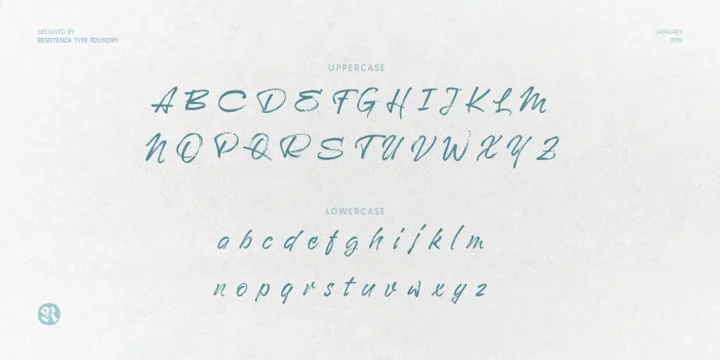 DESIGNED BY
RESISTENZA TYPE FOUNDRY
JANUARY
UPPERCASE
A B C D E F G H I J K L M
N O P Q R S T U V W X Y Z
LOWERCASE
a b c d e f g h i j k l m
n o p q r s t u v w x y z
R